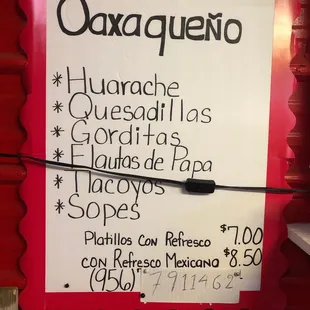 Oaxaqueño
*Huarache
*Quesadillas
*Gorditas
*Flautas de Papa
*Tlacoyos
*Sopes
Platillos Con Refresco $7.00
CON Refresco Mexicano $8.50
(956) 7911462